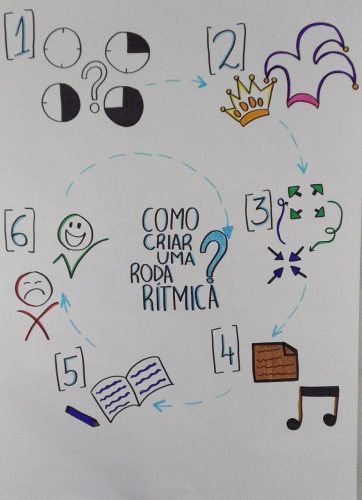 [1]
[2]
[3]
[4]
[5]
[6]
COMO
CRIAR
UMA
RODA
RÍTMICA
?
?